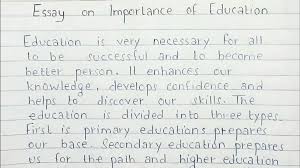 Essay on Importance of Education
Education is very necessary for all
to be successful and to become
better person. It enhances our
knowledge, develops confidence and
helps to discover our skills. The
education is divided into three types.
First is primary educations prepares
our base. Secondary education prepares
us for the path and higher education